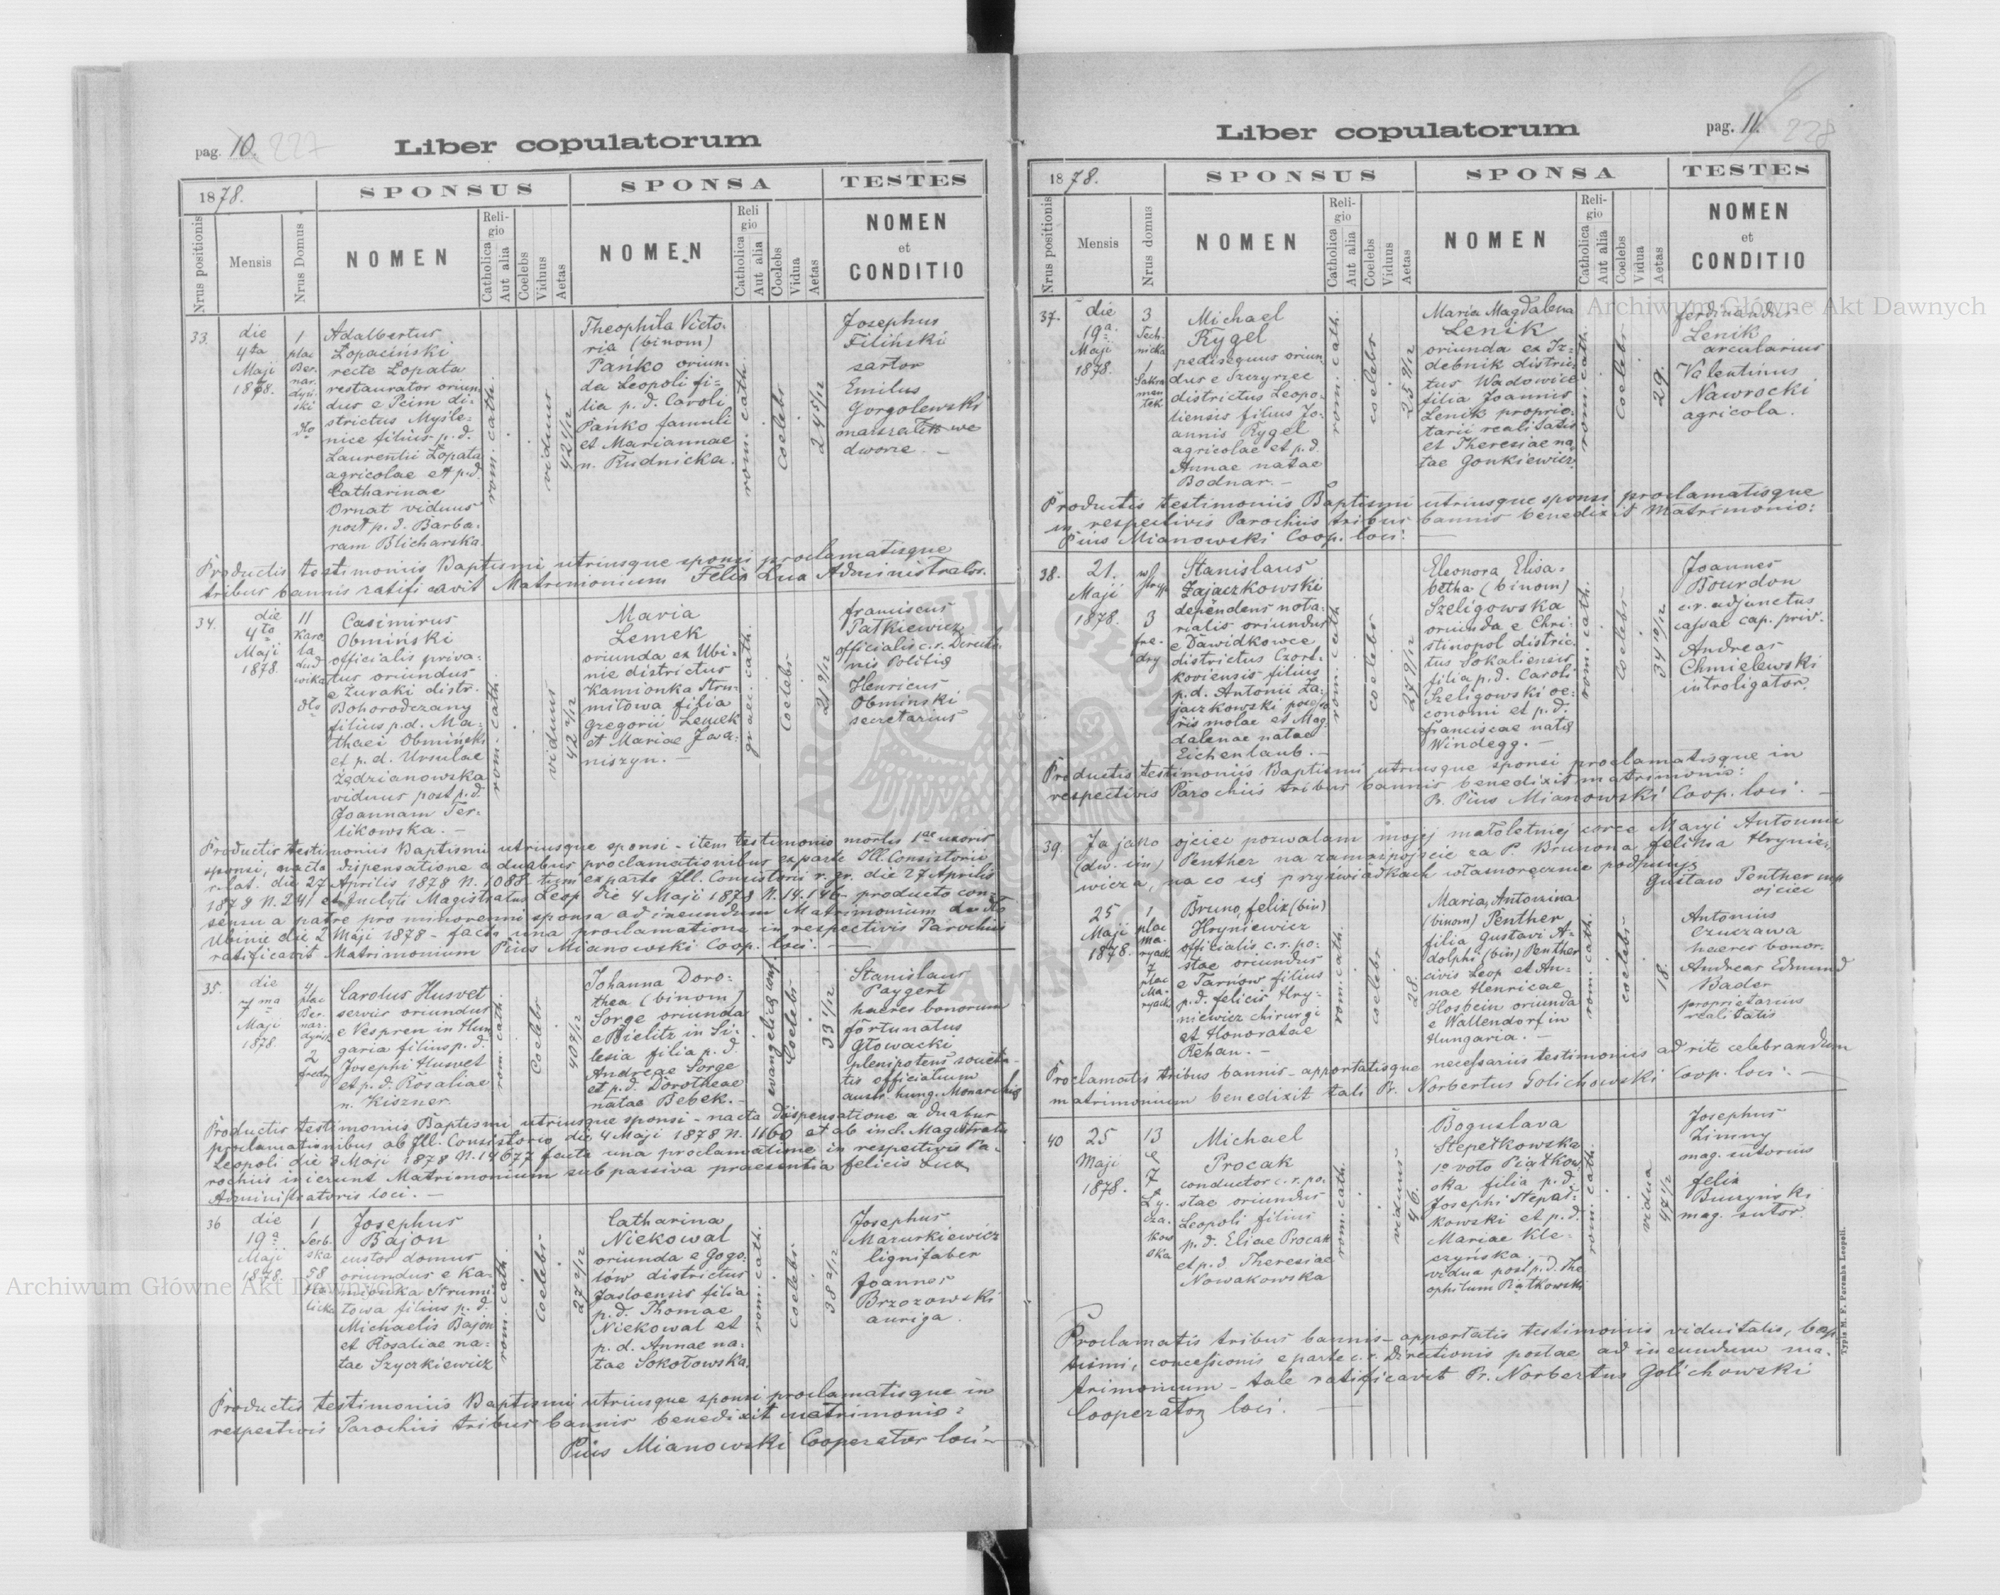 pag. 10. 227
Liber copulatorum
1878.
SPONSUS
SPONSA
TESTES
Nrus positionis
Mensis
Nrus Domus
NOMEN
Religio
Catholica
Aut alia
Coelebs
Viduus
Aetas
NOMEN
Religio
Catholica
Aut alia
Coelebs
Vidua
Aetas
NOMEN
et
CONDITIO
33.
die
4ta
Maji
1878.
1
plac
Ber-
nar-
dyń-
ski
dto
Adalbertus
Łopaciński
recte Łopata
restaurator oriun-
dus e Pcim di-
strictus Myśle-
nice filius p. d.
Laurentii Łopata
agricolae et p.d.
Catharinae
Ornat viduus
post p. d. Barba-
ram Blicharska
rom. cath.
viduus
42 1/12
Theophila Victo-
ria (binom)
Pańko oriun-
da Leopoli fi-
lia p. d. Caroli
Pańko famuli
et Mariannae
n. Rudnicka.
rom. cath.
coelebs
24 5/12
Josephus
Filiński
sartor
Emilus
Gorgolewski
marszałek we
dworze. -
Productis testimoniis Baptismi utriusque sponsi proclamatisque
tribus bannis ratificavit Matrimonium Felix Lux Administrator.
34.
die
4to
Maji
1878.
11
Karo
la
Lud
wika
dto
Casimirus
Obmiński
officialis priva-
tus oriundus
e Żuraki distr.
Bohorodczany
filius p.d. Ma-
thaei Obmiński
et p. d. Ursulae
Zędzianowska
viduus post p. d.
Joannam Ter-
likowska. -
rom. cath.
viduus
42 2/12
Maria
Lemek
oriunda ex Ubi-
nie districtus
Kamionka Stru-
miłowa filia
Gregorii Lemek
et Mariae Jwa-
niszyn. -
gr. cath.
coelebs
21 9/12
Franciscus
Patkiewicz
officialis c.r. Directio-
nis Politiae
Henricus
Obminski
secretarius
Productis testimoniis Baptismi utriusque sponsi - item testimonio mortis 1ae uxoris
sponsi, nacta dispensatione a duabus proclamationibus ex parte Ill. Consistorii
r. lat. die 27 Aprilis 1878 N. 1088 - tum ex parte Ill. Consistorii r. gr. die 27 Aprilis
1878 N. 241 et Inclyti Magistratus Leop. die 4 Maji 1878 N. 14.146 - producto con-
sensu a patre pro minorenni sponsa ad ineundum Matrimonium de dto
Ubinie die 2 Maji 1878 - facta una proclamatione in respectivis Parochiis
ratificavit Matrimonium Pius Mianowski Coop. loci. -
35.
die
7 ma
Maji
1878
plac
Ber-
nar-
dyńsk
2
Fredry
Carolus Husvet
servus oriundus
e Vespren in Hun
garia filius p. d.
Josephi Husvet
et p. d. Rosaliae
n. Kiszner.
rom. cath.
coelebs
40 7/12
Johanna Doro-
thea (binom)
Sorge oriunda
e Bielitz in Si-
lesia filia p. d.
Andreae Sorge
et p. d. Dorotheae
natae Bebek. -
coelebs
33 1/12
Stanislaus
Paygert
haeres bonorum
Fortunatus
Głowacki
plenipotens societa-
tis officialium
austr. hung. Monarchiae
Productis testimoniis Baptismi utriusque sponsi - nacta dispensatione a duabus
proclamationibus ab Ill. Consistorio die 4 Maji 1878 N. 1160 et ab incl. Magistratu
Leopoli die 3 Maji 1878 N. 14677 facta una proclamatione in respectivis Pa-
rochiis inierunt Matrimonium sub passiva praesentia Felicis Lux
Administratoris loci. -
36
die
19a
Maji
1878.
1
Serb-
ska
58
Ha-
licka
Josephus
Bajon
custos domus
oriundus e Ka-
mionka Strumi-
łowa filius p. d.
Michaelis Bajon
et Rosaliae na-
tae Szyczkiewicz
rom. cath.
coelebs
27 2/12
Catharina
Niekowal
oriunda e Gogo-
łów districtus
Jasloensis filia
p. d. Thomae
Niekowal et
p. d. Annae na-
tae Sokołowska
rom. cath.
coelebs
38 2/12
Josephus
Mazurkiewicz
lignifaber
Joannes
Brzozowski
auriga.
Productis testimoniis Baptismi utriusque sponsi proclamatisque in
respectivis Parochiis tribus bannis benedixit matrimonio:
Pius Mianowski Cooperator loci -
pag. 11. 228
Liber copulatorum
1878.
SPONSUS
SPONSA
TESTES
Nrus positionis
Mensis
Nrus domus
NOMEN
Religio
Catholica
Aut alia
Coelebs
Viduus
Aetas
NOMEN
Religio
Catholica
Aut alia
Coelebs
Vidua
Aetas
NOMEN
et
CONDITIO
37.
die
19a
Maji
1878.
3
Tech-
nicka
1
Sakra
men
tek
Michael
Rygel
pedisequus oriun-
dus e Szczyrzec
districtus Leopo-
liensis filius Jo-
annis Rygel
agricolae et p. d.
Annae natae
Bodnar. -
rom. cath.
coelebs
25 9/12
Maria Magdalena
Lenik
oriunda ex Iz-
debnik distric-
tus Wadowice
filia Joannis
Lenik proprie-
tarii realitatis
et Theresiae na-
tae Gonkiewicz.
rom. cath.
coelebs
29.
Ferdinandus
Lenik
arcularius
Valentinus
Nawrocki
agricola.
Productis testimoniis Baptismi utriusque sponsi proclamatisque
in respectivis Parochiis tribus bannis benedixit Matrimonio:
Pius Mianowski Coop. loci. -
38.
21.
Maji
1878.
3
fre-
dry
Stanislaus
Zajaczkowski
dependens nota-
rialis oriundus
e Dawidkowce
districtus Czort-
koviensis filius
p. d. Antonii Za-
jaczkowski posses
ris molae et Mag-
dalenae natae
Eichenlaub. -
rom. cath
coelebs
27 9/12
Eleonora Elisa-
betha (binom)
Szeligowska
oriunda e Chri-
stinopol distric-
tus Sokaliensis
filia p. d. Caroli
Szeligowski oe-
conomi et p. d.
Franciscae natae
Windegg. -
rom. cath.
coelebs
34 10/12
Joannes
Bourdon
c.r. adjunctus
cassae cap. priv.
Andreas
Chmielewski
introligator.
Productis testimoniis Baptismi utriusque sponsi proclamatisque in
respectivis Parochiis tribus bannis benedixit matrimonio:
P. Pius Mianowski Coop. loci. -
39.
Ja jako ojciec pozwalam mojej małoletniej córce Maryi Antoninie
(dw. im) Penther na zamążpójście za P. Brunona Feliksa Hrynie-
wicza, na co się przy świadkach własnoręcznie podpisuję
Gustaw Penther mp
ojciec
25
Maji
1878.
1
plac
Ma-
ryack
7
plac
Ma-
ryack
Bruno, Felix (bin)
Hryniewicz
officialis c.r. po-
stae oriundus
e Tarnów filius
p. d. Felicis Hry-
niewicz chirurgi
et Honoratae
Rehan. -
rom. cath.
coelebs
28
Maria, Antonina
(binom) Penther
filia Gustavi A-
dolphi (bin) Penther
civis Leop et An-
nae Henricae
Hosbein oriunda
e Wallendorf in
Hungaria. -
rom. cath.
coelebs
18.
Antonius
Czuczawa
haeres bonor.
Andreas Edmund
Bader
proprietarius
realitatis
Proclamatis tribus bannis - apportatisque necessariis testimoniis ad rite celebrandum
matrimonium benedixit tali Pr. Norbertus Golichowski Coop. loci. -
40
25
Maji
1878.
13
&
7
Ły-
cza-
kow
ska
Michael
Procak
conductor c. r. po-
stae oriundus
Leopoli filius
p. d. Eliae Procak
et p. d. Theresiae
Nowakowska
rom. cath.
viduus
46.
Boguslava
Stepełkowska
1o voto Piątkow-
ska filia p. d.
Josephi Stepał-
kowski et p. d.
Mariae Kle-
czyńska.
vidua post p. d. The
ophilum Piątkowski
rom. cath.
vidua
47 1/2
Josephus
Zimny
mag. sutorius
Felix
Buszyński
mag. sutor.
Proclamatis tribus bannis - apportatis testimoniis viduitatis, bap
tismi, concessionis e parte c. r. Directionis postae ad ineundum ma-
trimonium - tale ratificavit Pr. Norbertus Golichowski
Cooperator loci. -
Typis M. F. Poremba Leopoli.
Archiwum Główne Akt Dawnych
Archiwum Główne Akt Dawnych